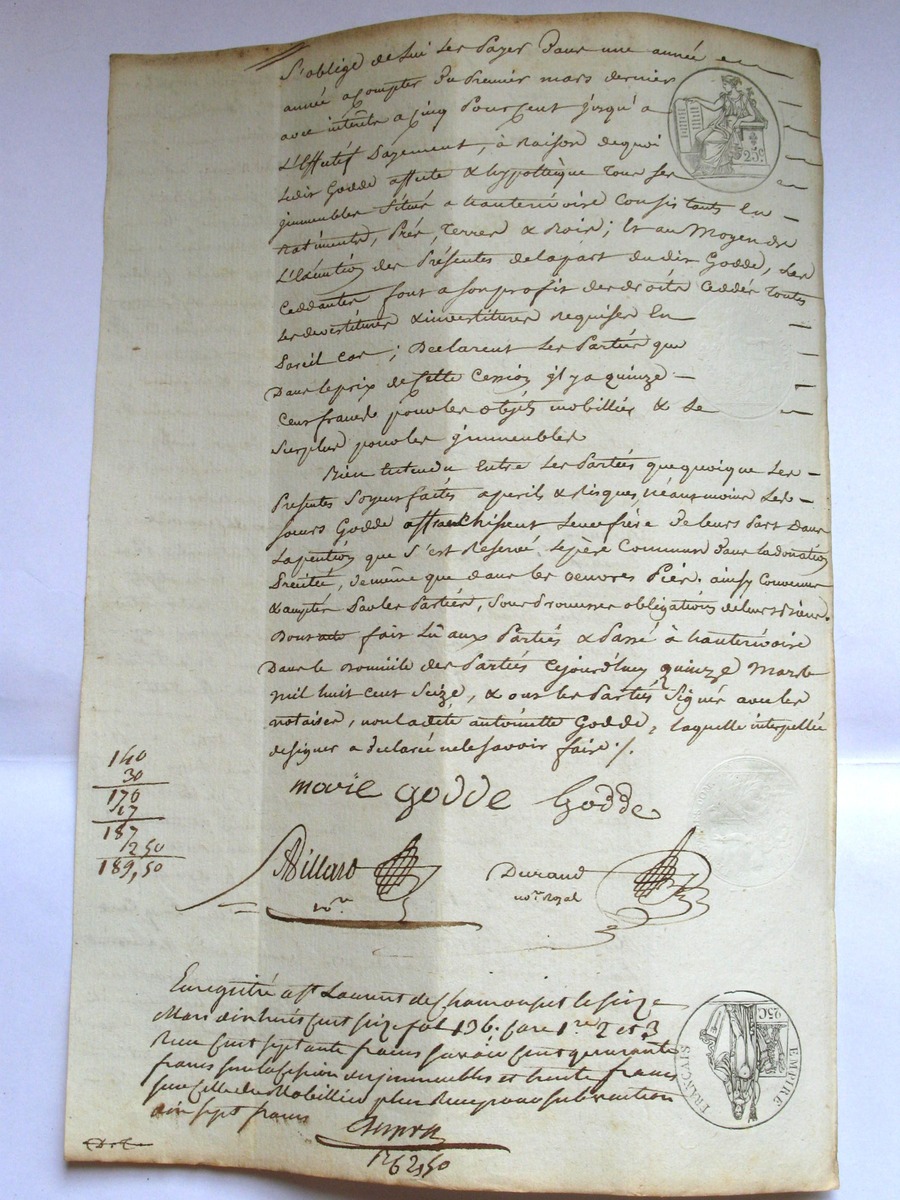 s'oblige de lui les payer dans une année en
année a compter du premier mars dernier
avec interets a cinq pour cent jusqu'a
L'Effectif payement, à raison dequoi
Ledit Godde affecte & hypothèque tous ses
jmmeubles situés a hauterivoire Consistants En
Batiments, Prés, Terres & Bois; Et au Moyen de
des Présentes delapart dudit Godde, Les
Ceddantes font a son profit des droits Ceddés Toutes
Les devestitures & investitures requises En
Pareil Cas; Declarent Les Parties que
Dans le prix de Cette Cession jl y a quinze
Cent francs pour les objets mobilliés & Le
Surplus pour les jmmeubles
Bien Entendu Entre Les Parties que quoique Les
Presentes Soyent faites a perils & Risques, néanmoins Les
soeurs Godde affranchissent Leur frère de leurs Part Dans
La pention que s'est Reservé le père Commun dans la donation
Précité, de même que dans les oeuvres Pies. ainsy Convenu
& accepté Par les Parties, Sous Promesses obligations de leurs Biens.
Dont acte fait Lû aux Parties & Passé à hauterivoire
Dans le Domicile des Parties Cejourd'huy quinze Mars
mil huit cent Seize, & ont les Parties Signé avec les
notaires, non ladite antoinette Godde, laquelle interpellée
de signer a déclaré ne le savoir faire ./.
marie godde Godde
140
30
170
17
187
2 50
189,50
Billard Durand
nore. nore. Royal
Enregistré a St. Laurent de Chamousset le seize
Mars dix huit cent seize fol 136. case 1re 2 et 3
Recu cent septante francs savoir cent quarante
francs sur la cession des jmmeubles et trente francs
sur celle du Mobillier plus Recu pour subvention
dix sept francs
R 62,50
25c
25C
EMPIRE
FRANÇAIS